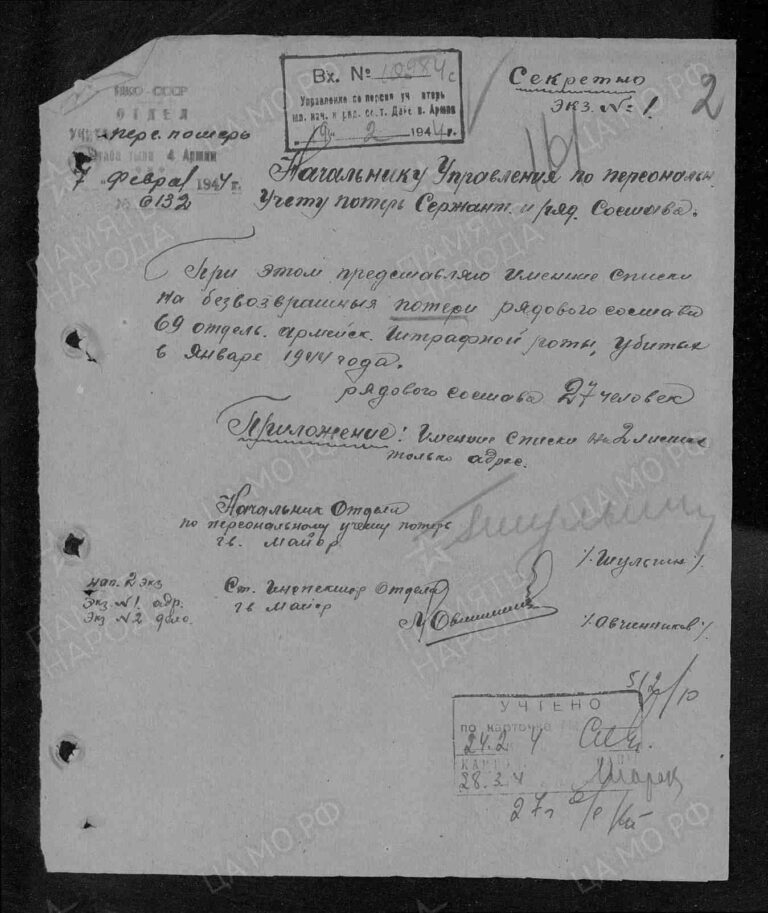 НКО СССР
ОТДЕЛ
перс. потерь
Штаба тыла 4 Армии
7 феврал 1944 г.
№ 0132
Вх. № 10984с
Управление по персон. уч. потерь
мл. нач. и ряд. сост. Дейс в. Армии
"9" 2 1944 г.
Секретно
экз. № 1.
2
161
Начальнику Управления по персональн.
Учету потерь Сержант. и ряд. Состава.
При этом представляю именные списки
на безвозвратныя потери рядового состава
69 отдель. армейск. Штрафной роты, убитых
в Январе 1944 года.
рядового состава 27 человек
Приложение: Именные списки на 2 листах
только адрес.
Начальник Отдела
по персональному учету потерь
гв. майор
/. Шульгин /.
нап. 2 экз
экз. № 1. адр.
экз № 2 дело.
Ст. Инспектор Отдела
гв майор
/. Овчинников /.
5/2
УЧТЕНО
по карточке
24.2 4
28.3.4
27
ПАМЯТЬ НАРОДА
ЦАМО РФ